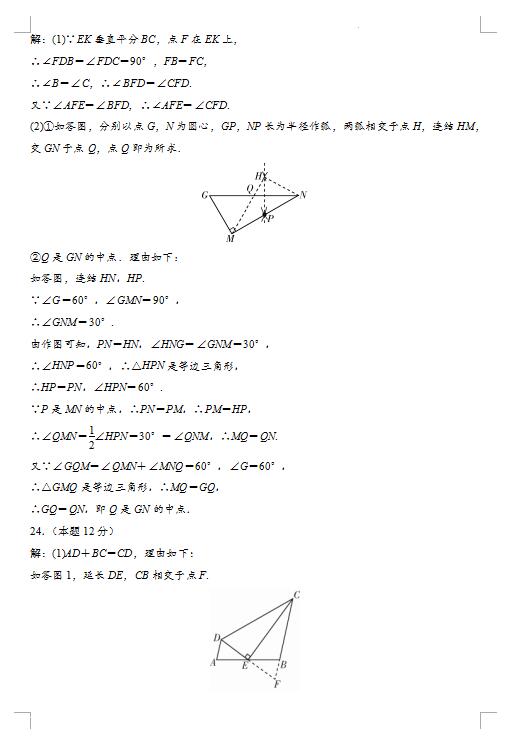 解：(1)∵EK垂直平分BC，点F在EK上，
∴∠FDB＝∠FDC＝90°，FB＝FC，
∴∠B＝∠C，∴∠BFD＝∠CFD.
又∵∠AFE＝∠BFD，∴∠AFE＝∠CFD.
(2)①如答图，分别以点G，N为圆心，GP，NP长为半径作弧，两弧相交于点H，连结HM，
交GN于点Q，点Q即为所求.
H
G
Q
N
P
M
②Q是GN的中点．理由如下：
如答图，连结HN，HP.
∵∠G＝60°，∠GMN＝90°，
∴∠GNM＝30°.
由作图可知，PN＝HN，∠HNG＝∠GNM＝30°，
∴∠HNP＝60°，∴△HPN是等边三角形，
∴HP＝PN，∠HPN＝60°.
∵P是MN的中点，∴PN＝PM，∴PM＝HP，
∴∠QMN＝1/2∠HPN＝30°＝∠QNM，∴MQ＝QN.
又∵∠GQM＝∠QMN＋∠MNQ＝60°，∠G＝60°，
∴△GMQ是等边三角形，∴MQ＝GQ，
∴GQ＝QN，即Q是GN的中点.
24.（本题12分）
解：(1)AD＋BC＝CD，理由如下：
如答图1，延长DE，CB相交于点F.
C
D
A
E
B
F